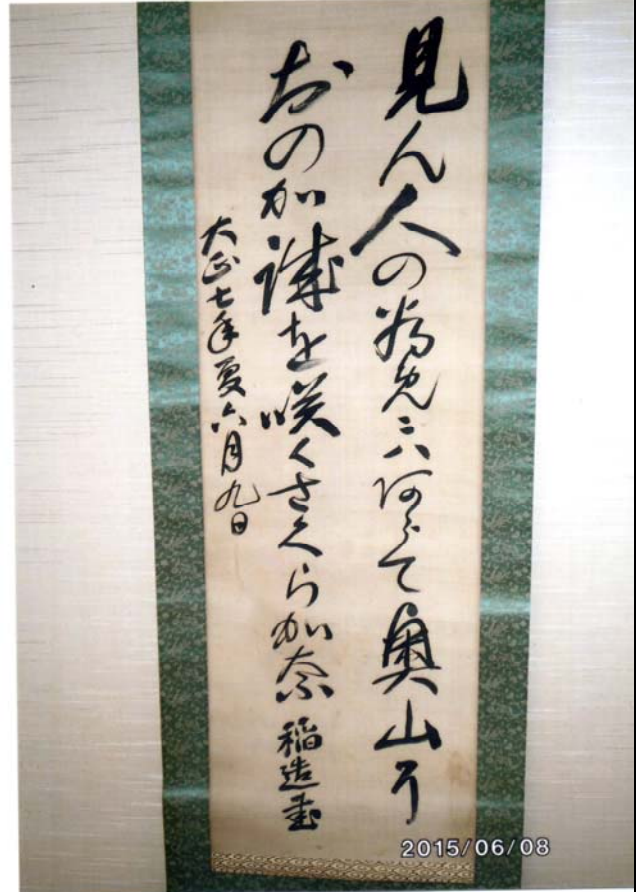 見ん人の為免ニハ阿らて奥山尓
おの加誠を咲くさくら加奈 稲造書
大正七年夏六月九日
2015/06/08